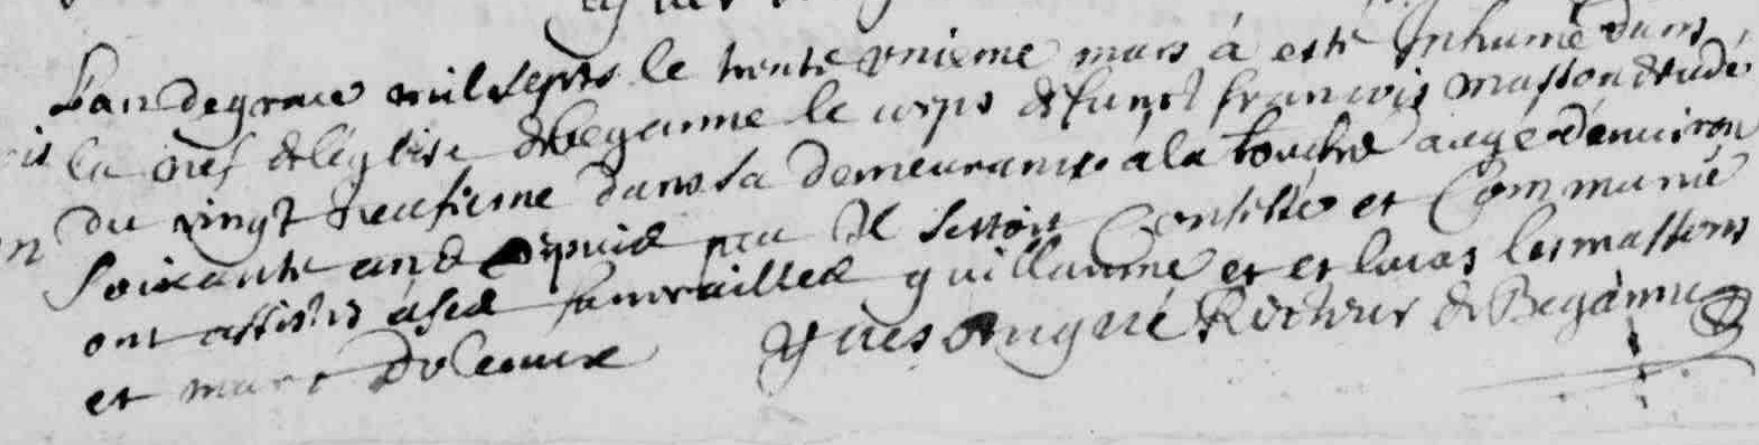 L'an de grace mil sept le trente vnieme mars à esté Inhumé dans
la nef de léglise de beganne le corps defunct francois masson decedé
du vingt neufieme dans sa demeurance a la touche aagé denuiron
soixante ans depuis peu Il sestoit Confessé et Communié
ont assistés á ses funerailles guillaume et et lucas les massons
et marc yues Angué Recteur de Beganne